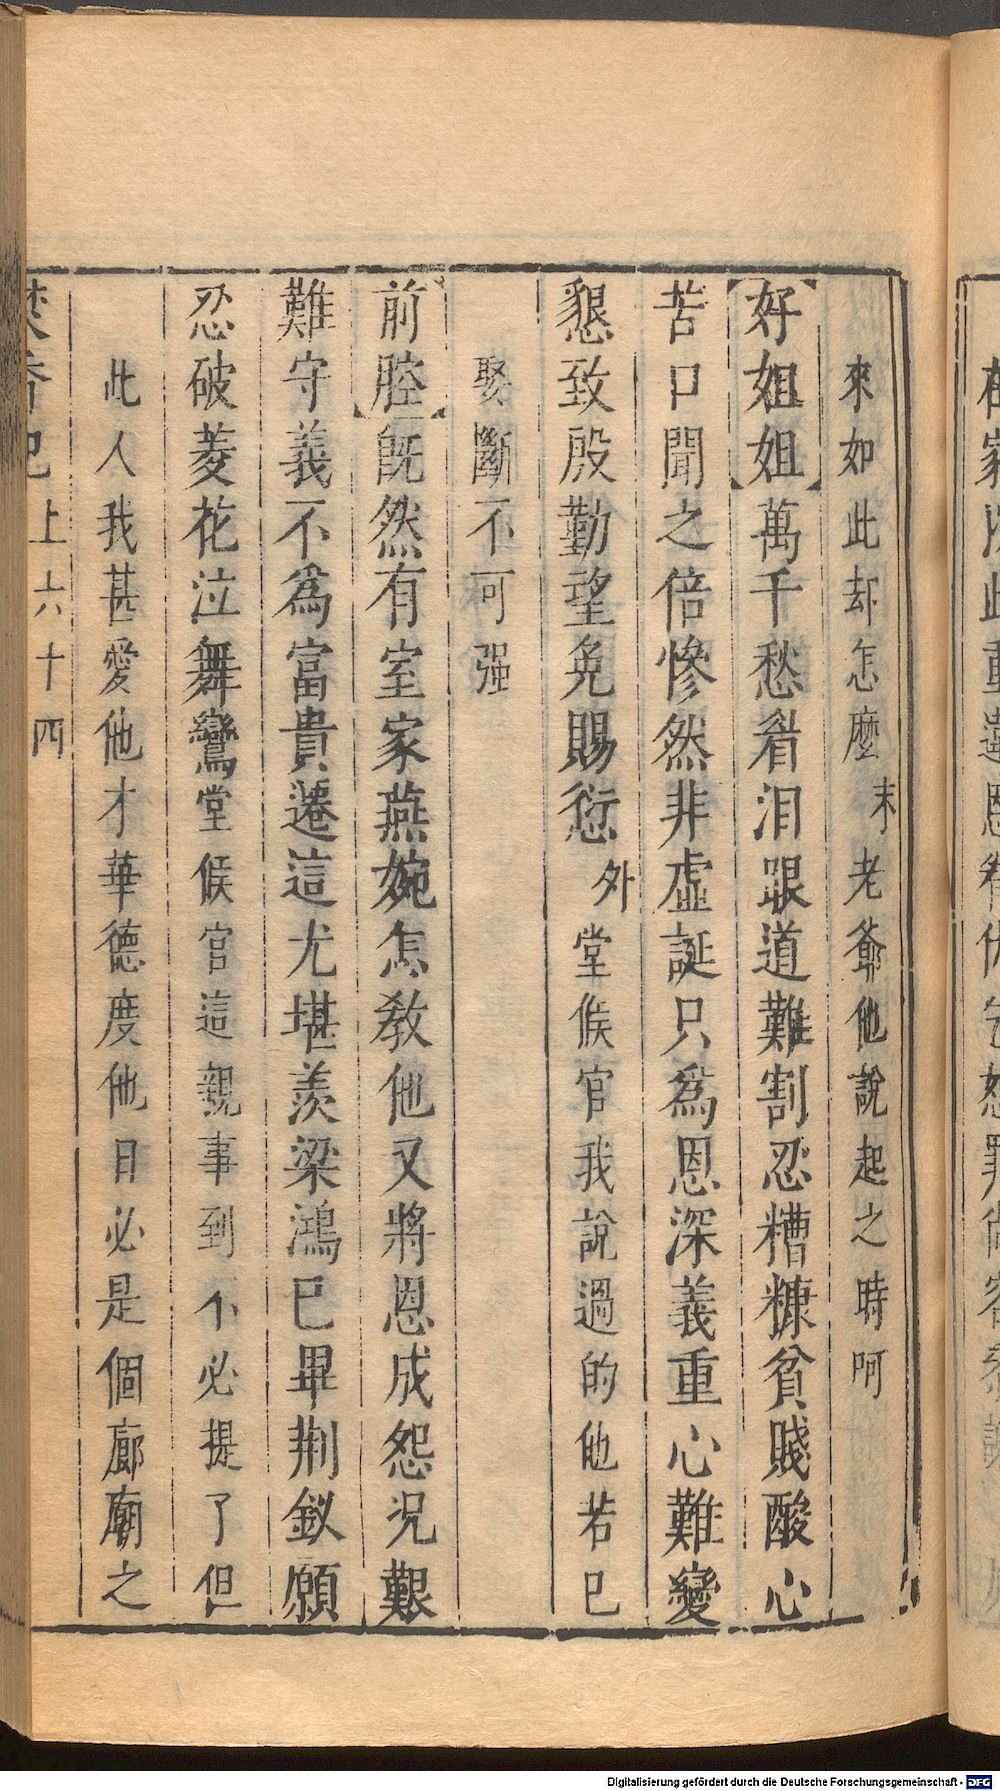 來如此却怎麼末老爺他說起之時呵
好姐姐萬千愁眉淚眼道難割忍糟糠貧賤酸心
苦口聞之倍慘然非虛誕只為恩深義重心難變
懇致殷勤望免賜愆外堂候官我說過的他若已
娶斷不可强
前腔既然有室家燕婉怎教他又將恩成怨况艱
難守義不為富貴遷這尤堪羨梁鴻已畢荆釵願
忍破菱花泣舞鸞堂候官這親事到不必提了但
此人我甚愛他才華德度他日必是個廊廟之
焚香記上六十四
Digitalisierung gefördert durch die Deutsche Forschungsgemeinschaft - DFG